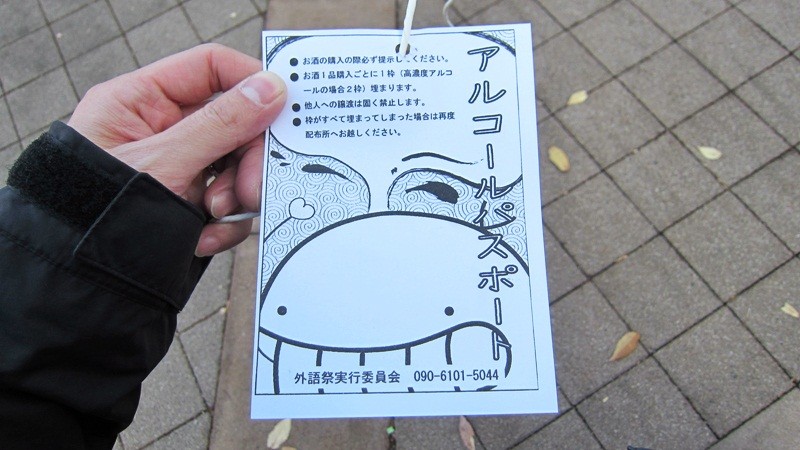 ● お酒の購入の際必ず提示してください。
● お酒１品購入ごとに１枠（高濃度アルコ
ールの場合２枠）埋まります。
● 他人への譲渡は固く禁止します。
● 枠がすべて埋まってしまった場合は再度
配布所へお越しください。
アルコールパスポート
外語祭実行委員会　090-6101-5044